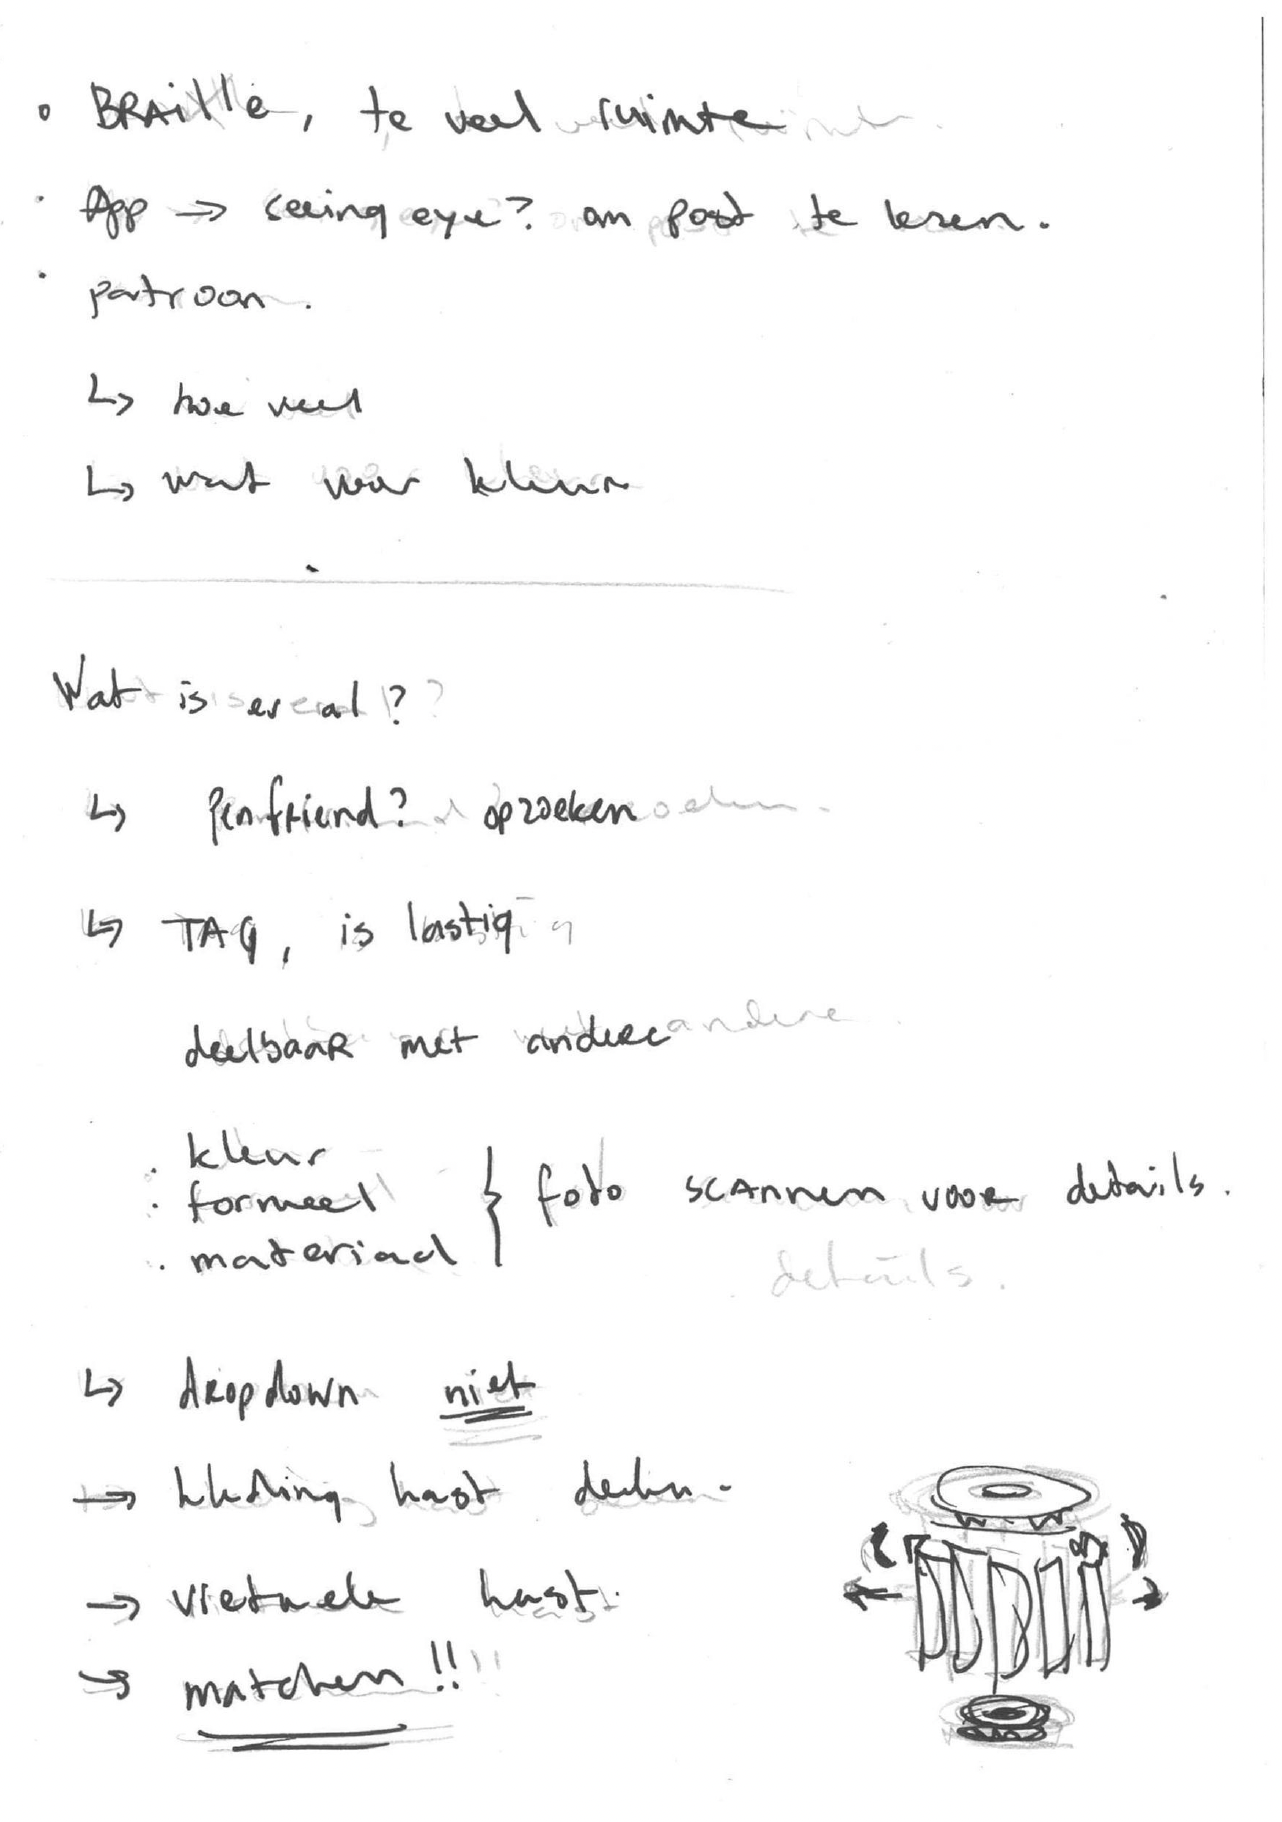 • BRAille, te veel ruimte
• App → seeing eye? om post te lezen.
• patroon.
↳ hoe veel
↳ wat voor kleur
Wat is er al?
↳ Penfriend? opzoeken
↳ TAG, is lastig
deelbaar met andere
. kleur
. formeel
. materiaal
} foto scannen voor details.
details.
↳ dropdown niet
→ kleding kast delen.
→ virtuele kast.
→ matchen!!